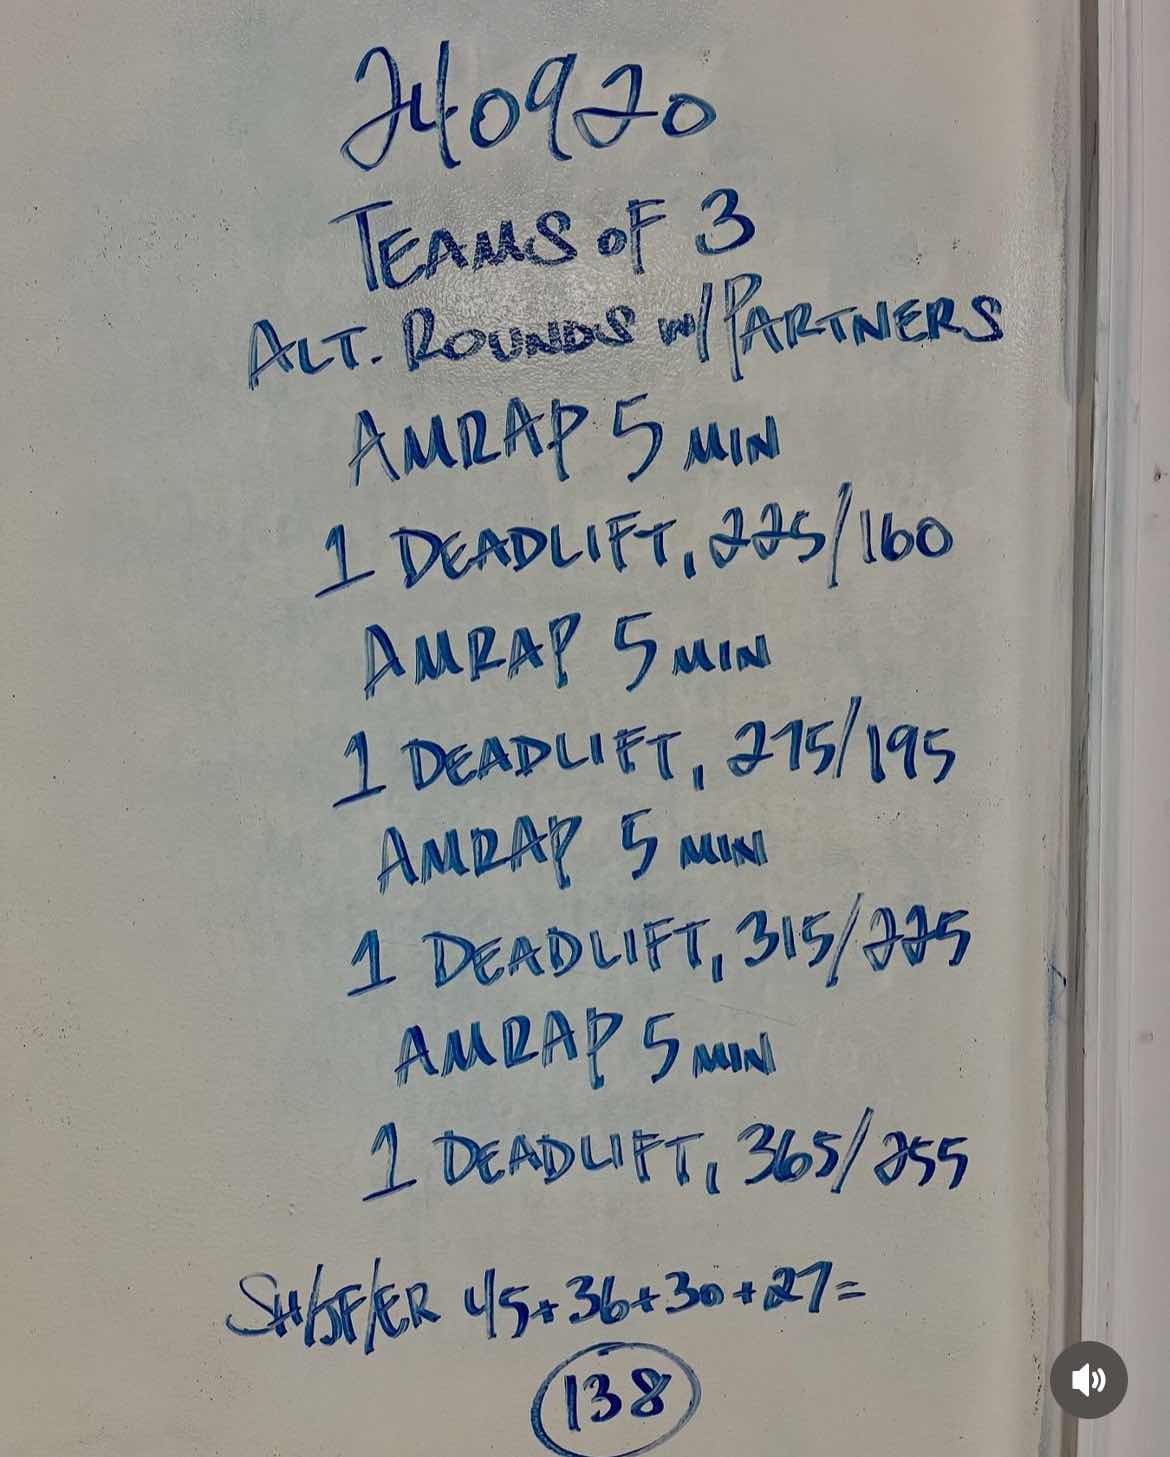 240920
TEAMS OF 3
ALT. ROUNDS W/ PARTNERS
AMRAP 5 MIN
1 DEADLIFT, 225/160
AMRAP 5 MIN
1 DEADLIFT, 275/195
AMRAP 5 MIN
1 DEADLIFT, 315/225
AMRAP 5 MIN
1 DEADLIFT, 365/255
SH/JF/ER 45+36+30+27=
138